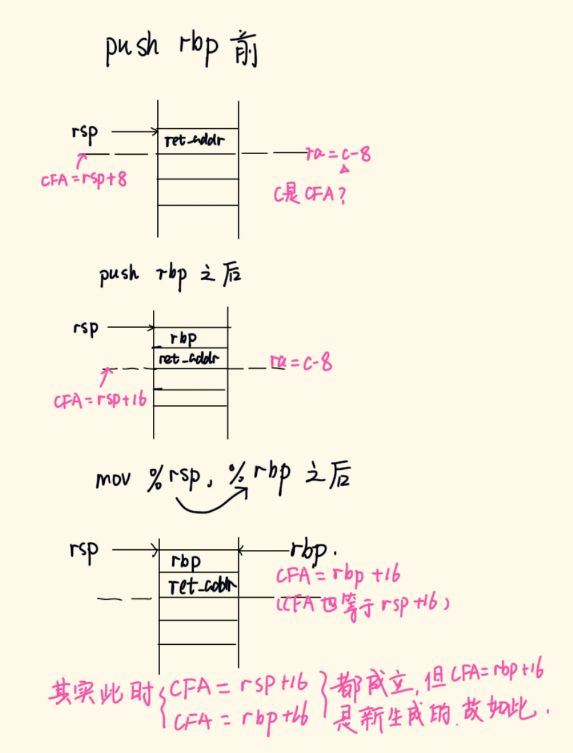 push rbp 前
rsp
ret_addr
CFA=rsp+8
ra=c-8
C是 CFA?
push rbp 之后
rsp
rbp
ret_addr
CFA=rsp+16
ra=c-8
mov %rsp, %rbp 之后
rsp
rbp
rbp.
ret_addr
CFA=rbp+16
(CFA也等于rsp+16)
其实此时{CFA=rsp+16 CFA=rbp+16}都成立,但CFA=rbp+16
是新生成的,故如此.